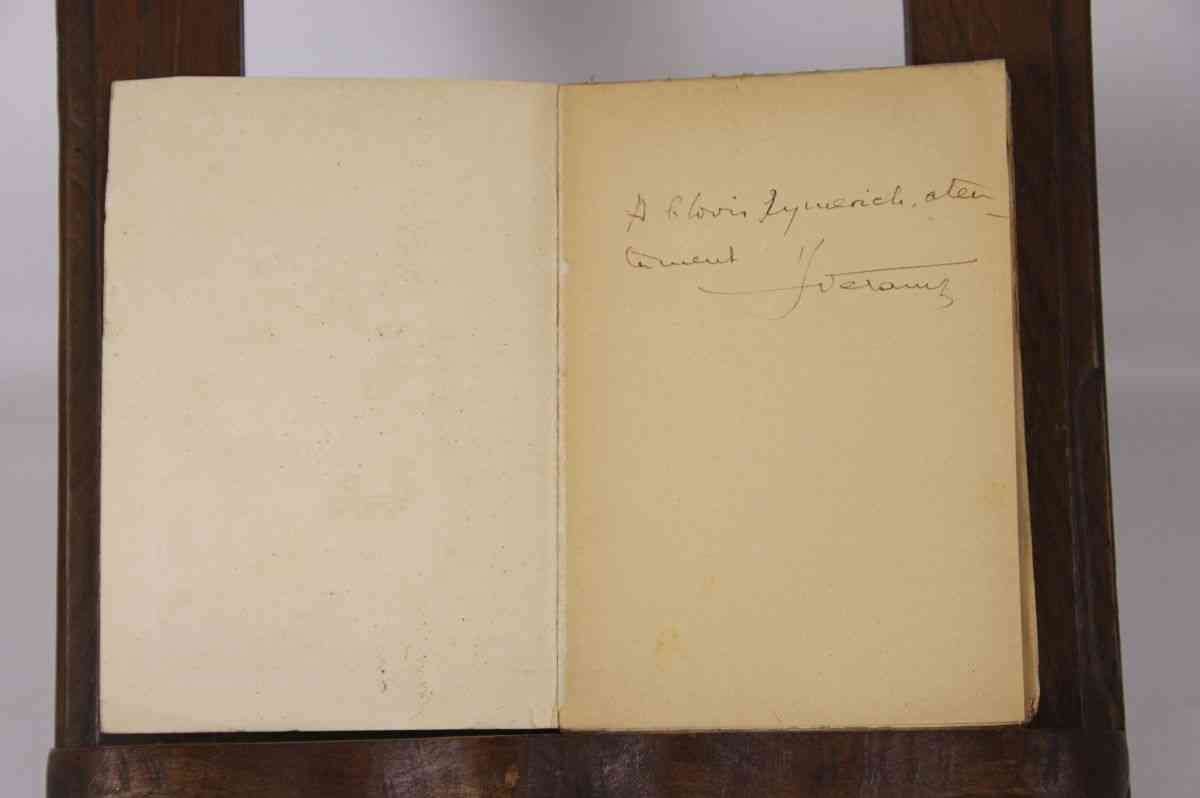 A Clovis Eymerich, aten-
tament